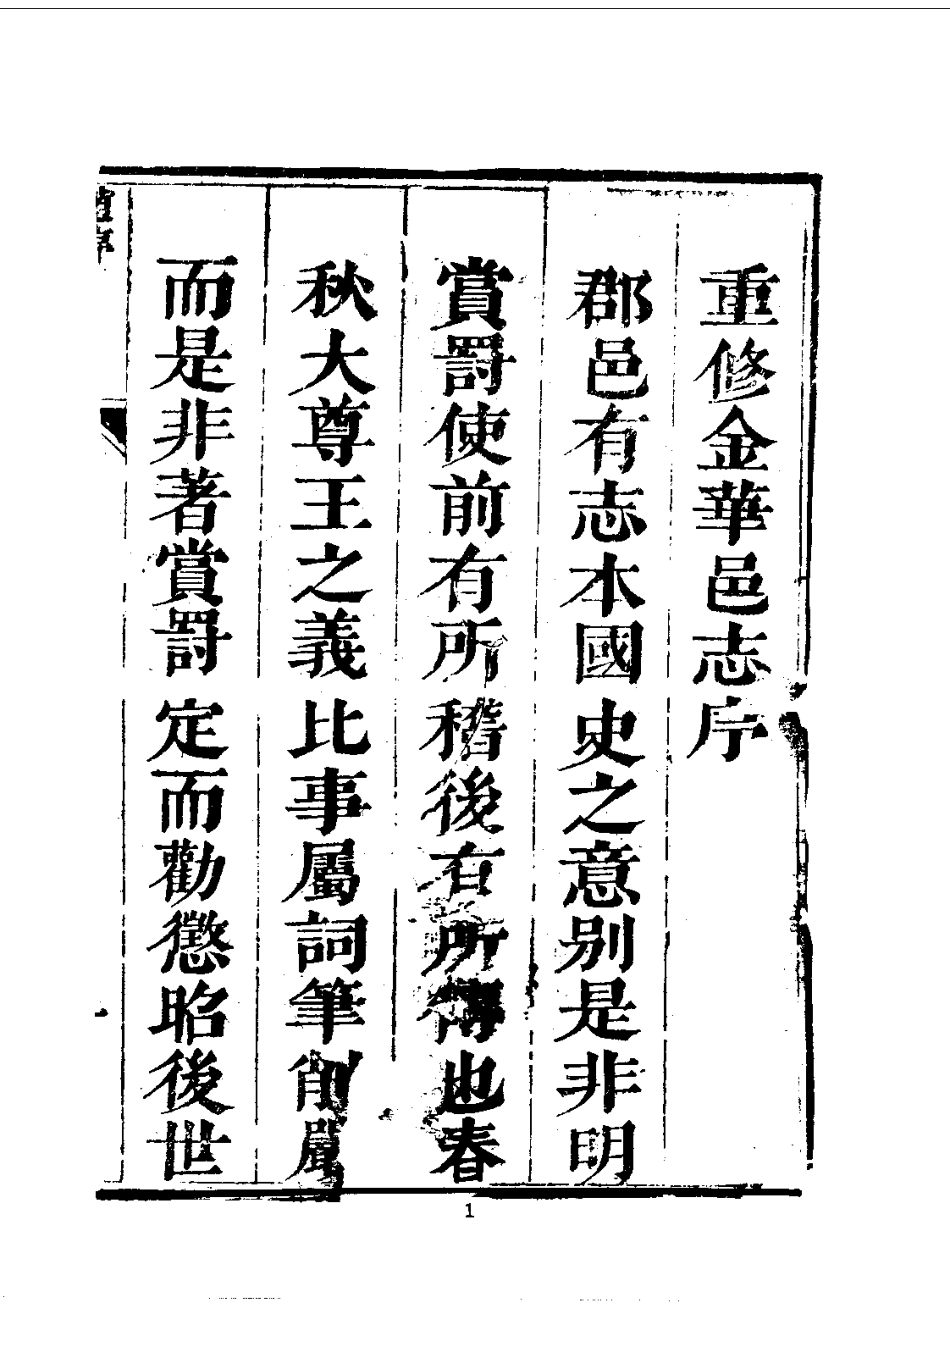 重修金華邑志序
郡邑有志本國史之意别是非明
賞罰使前有所稽後有所傳也春
秋大尊王之義比事屬詞筆削嚴
而是非著賞罰定而勸懲昭後世
序
1